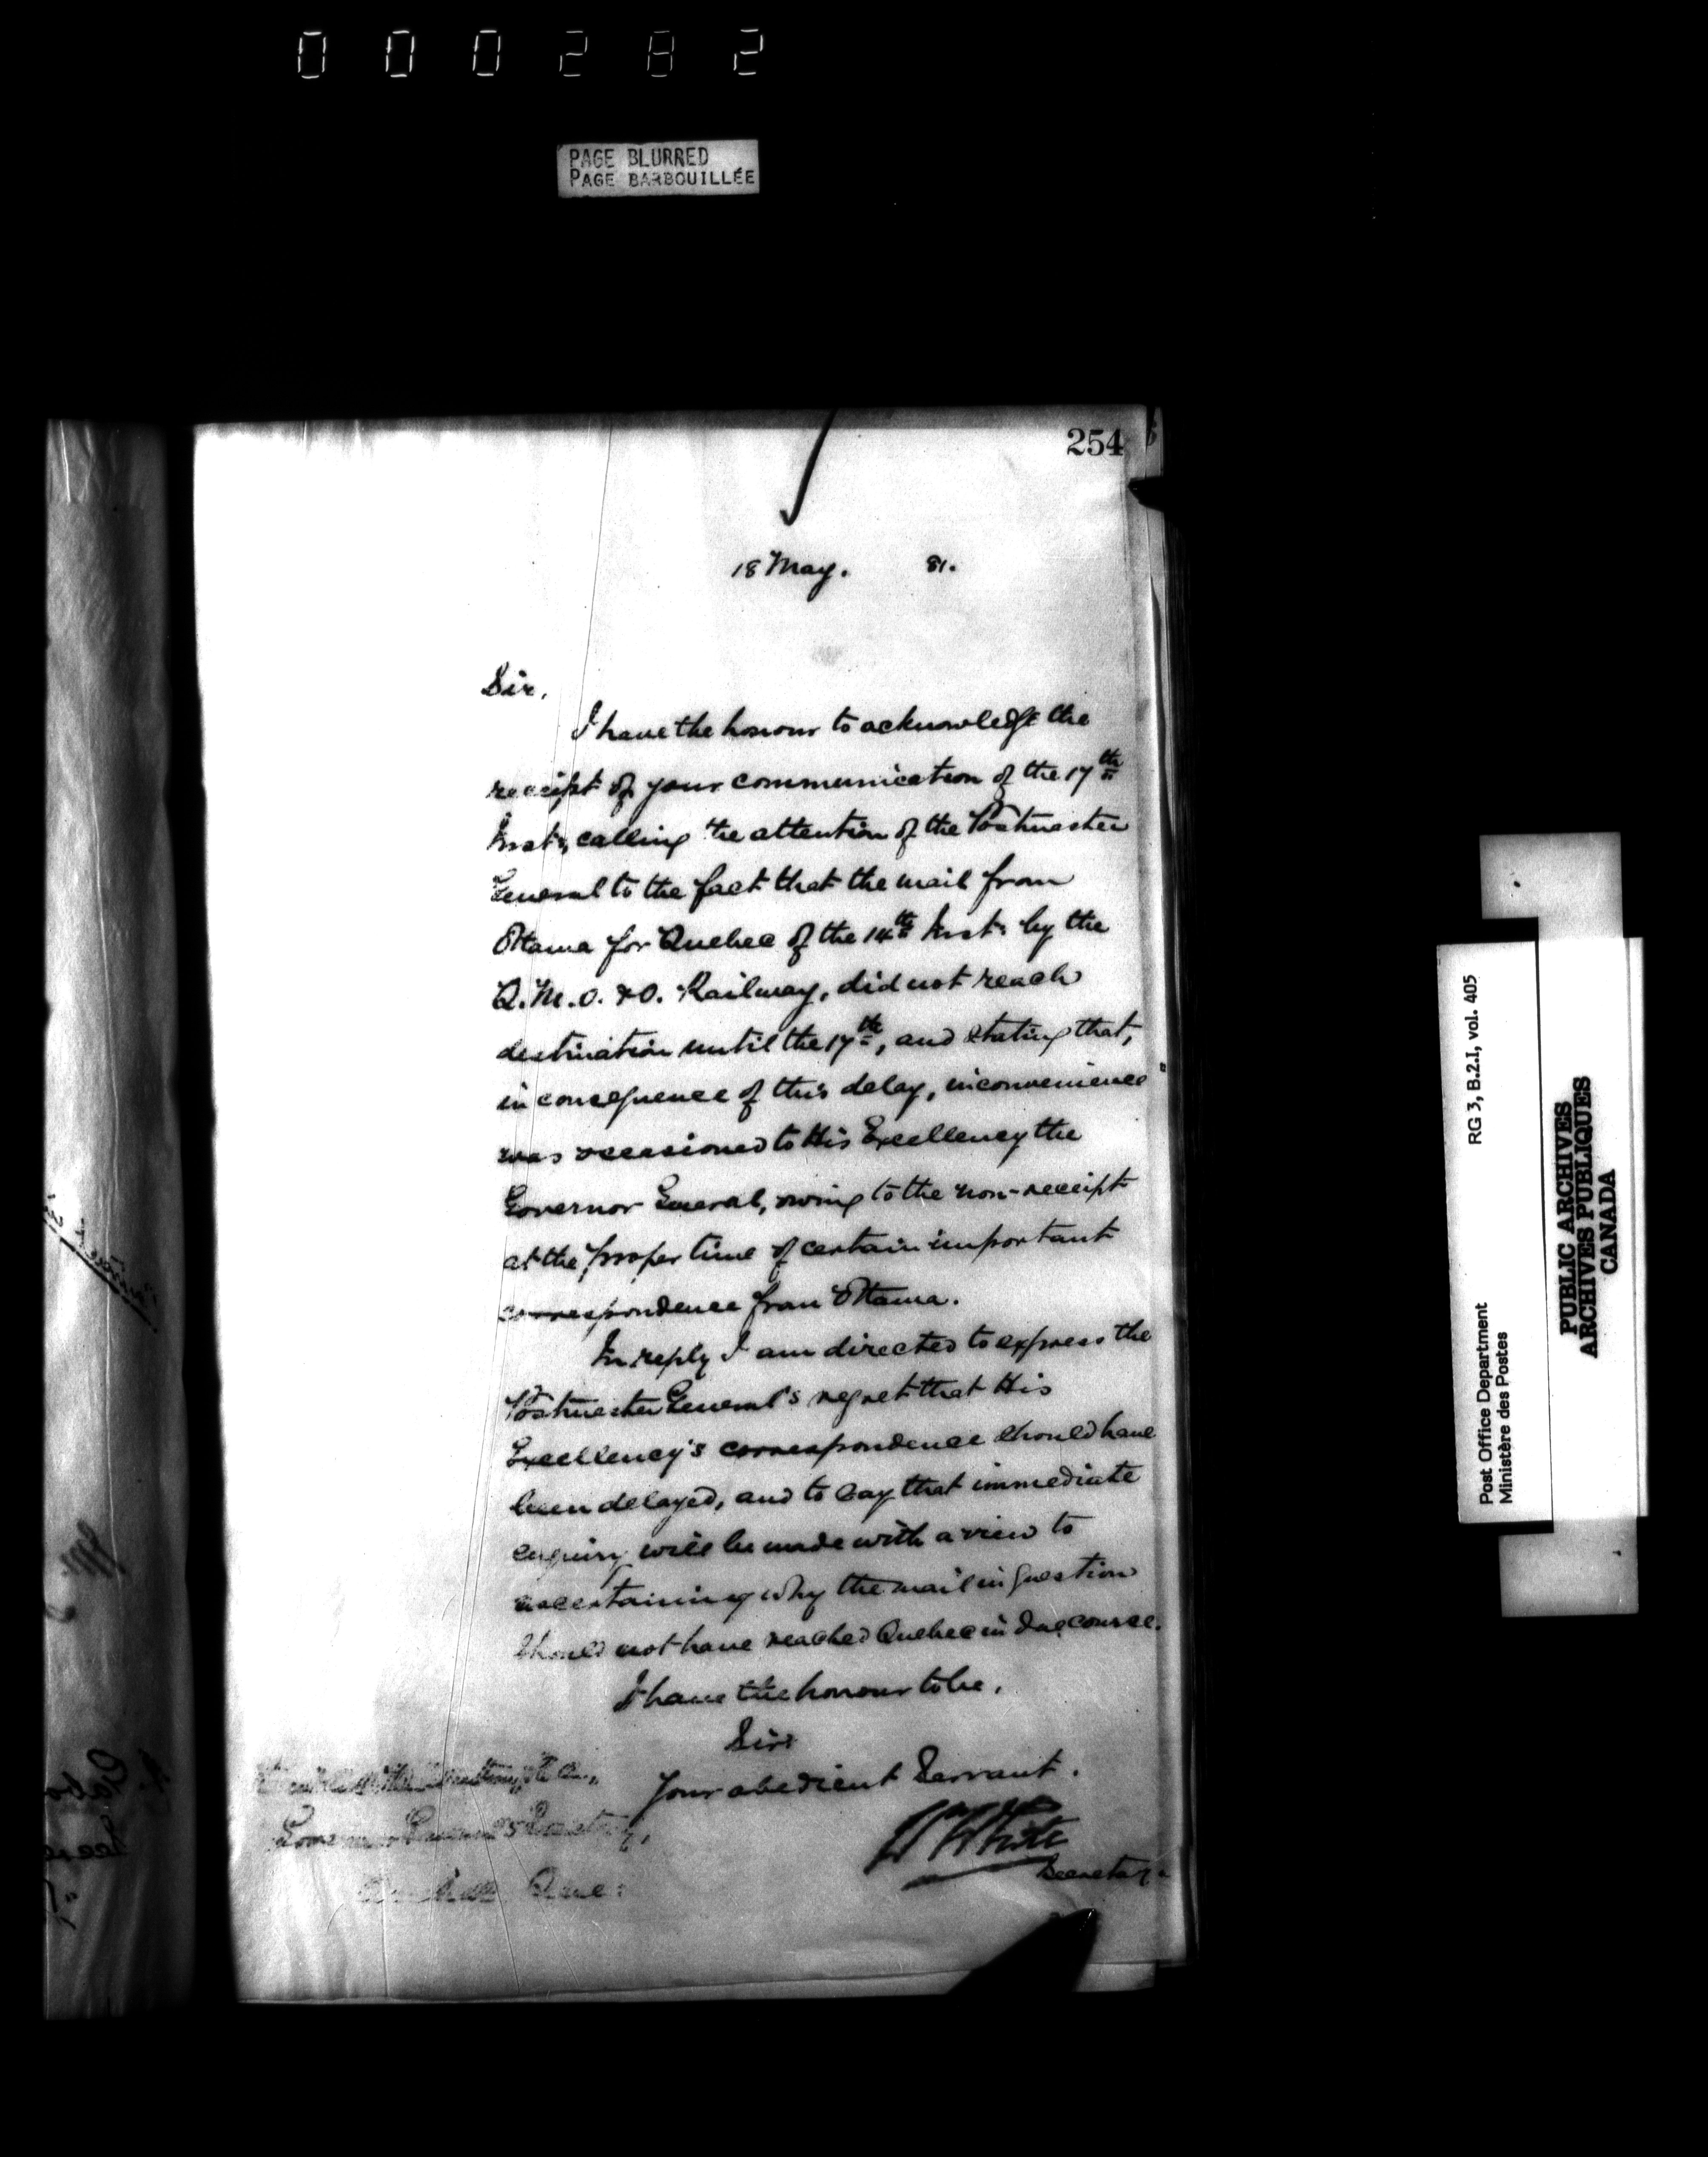 000282
PAGE BLURRED
PAGE BARBOUILLÉE
254
18 May. 81.
Sir,
I have the honour to acknowledge the
receipt of your communication of the 17th
Inst., calling the attention of the Postmaster
General to the fact that the mail from
Ottawa for Quebec of the 14th Inst. by the
Q.M.O. & O. Railway, did not reach
destination until the 17th, and stating that,
in consequence of this delay, inconvenience
was occasioned to His Excellency the
Governor General, owing to the non-receipt
at the proper time of certain important
correspondence from Ottawa.
In reply I am directed to express the
Postmaster General's regret that His
Excellency's correspondence should have
been delayed, and to say that immediate
enquiry will be made with a view to
ascertaining why the mail in question
should not have reached Quebec in due course.
I have the honour to be,
Sir,
Your obedient Servant.
Wm White
Secretary.
Governor General's Secretary,
Que:
RG 3, B.2.I, vol. 405
Post Office Department
Ministère des Postes
PUBLIC ARCHIVES
ARCHIVES PUBLIQUES
CANADA